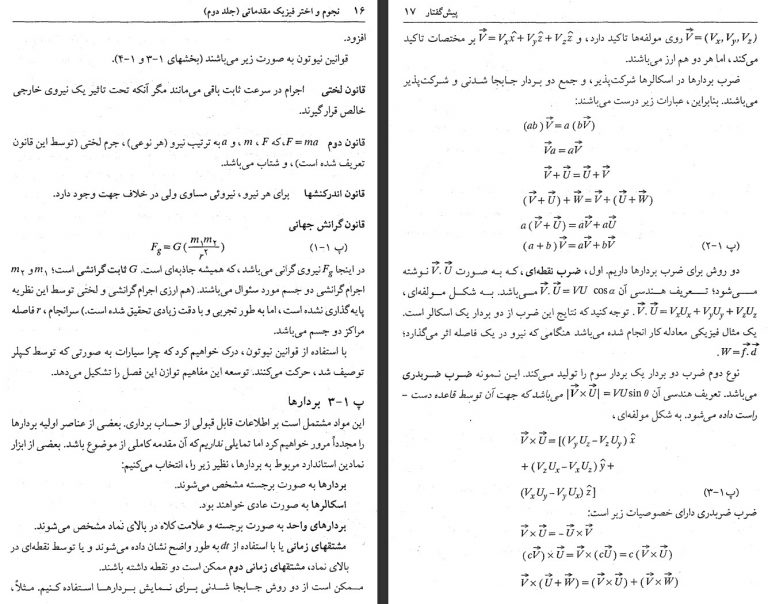 ۱۶ نجوم و اختر فیزیک مقدماتی (جلد دوم)
افزود.
قوانین نیوتون به صورت زیر می‌باشند (بخشهای ۱-۳ و ۱-۴).
قانون لختی اجرام در سرعت ثابت باقی می‌مانند مگر آنکه تحت تاثیر یک نیروی خارجی
خالص قرار گیرند.
قانون دوم F = ma، که m ، F ، و a به ترتیب نیرو (هر نوعی)، جرم لختی (توسط این قانون
تعریف شده است)، و شتاب می‌باشد.
قانون اندرکنشها برای هر نیرو، نیروئی مساوی ولی در خلاف جهت وجود دارد.
قانون گرانش جهانی
F_g = G (m₁m₂ / r²) (پ ۱-۱)
در اینجا F_g نیروی گرانی می‌باشد، که همیشه جاذبه‌ای است. G ثابت گرانشی است؛ m₁ و m₂
اجرام گرانشی دو جسم مورد سئوال می‌باشند. (هم ارزی اجرام گرانشی و لختی توسط این نظریه
پایه گذاری نشده است، اما به طور تجربی و با دقت زیادی تحقیق شده است.) سرانجام، r فاصله
مراکز دو جسم می‌باشد.
با استفاده از قوانین نیوتون، درک خواهیم کرد که چرا سیارات به صورتی که توسط کپلر
توصیف شد، حرکت می‌کنند. توسعه این مفاهیم توازن این فصل را تشکیل می‌دهد.
پ ۱-۳ بردارها
این مواد مشتمل است بر اطلاعات قابل قبولی از حساب برداری. بعضی از عناصر اولیه بردارها
را مجدداً مرور خواهیم کرد اما تمایلی نداریم که آن مقدمه کاملی از موضوع باشد. بعضی از ابزار
نمادین استاندارد مربوط به بردارها، نظیر زیر را، انتخاب می‌کنیم:
بردارها به صورت برجسته مشخص می‌شوند.
اسکالرها به صورت عادی خواهند بود.
بردارهای واحد به صورت برجسته و علامت کلاه در بالای نماد مشخص می‌شوند.
مشتقهای زمانی یا با استفاده از dt به طور واضح نشان داده می‌شوند و یا توسط نقطه‌ای در
بالای نماد، مشتقهای زمانی دوم ممکن است دو نقطه داشته باشند.
ممکن است از دو روش جابجا شدنی برای نمایش بردارها استفاده کنیم. مثلاً،
پیش‌گفتار ۱۷
V⃗ = (Vₓ, V_y, V_z) روی مولفه‌ها تاکید دارد، و V⃗ = Vₓx̂ + V_yẑ + V_zẑ بر مختصات تاکید
می‌کند، اما هر دو هم ارز می‌باشند.
ضرب بردارها در اسکالرها شرکت‌پذیر، و جمع دو بردار جابجا شدنی و شرکت‌پذیر
می‌باشند. بنابراین، عبارات زیر درست می‌باشند:
(ab) V⃗ = a (bV⃗)
V⃗a = aV⃗
V⃗ + U⃗ = U⃗ + V⃗
(V⃗ + U⃗) + W⃗ = V⃗ + (U⃗ + W⃗)
a (V⃗ + U⃗) = aV⃗ + aU⃗
(a + b) V⃗ = aV⃗ + bV⃗ (پ ۱-۲)
دو روش برای ضرب بردارها داریم. اول، ضرب نقطه‌ای، که به صورت V⃗. U⃗ نوشته
می‌شود؛ تعریف هندسی آن V⃗. U⃗ = VU cos α می‌باشد. به شکل مولفه‌ای،
V⃗. U⃗ = VₓUₓ + V_yU_y + V_zU_z . توجه کنید که نتایج این ضرب از دو بردار یک اسکالر است.
یک مثال فیزیکی معادله کار انجام شده می‌باشد هنگامی که نیرو در یک فاصله اثر می‌گذارد؛
W = f⃗. d⃗.
نوع دوم ضرب دو بردار یک بردار سوم را تولید می‌کند. این نمونه ضرب ضربدری
می‌باشد. تعریف هندسی آن |V⃗ × U⃗| = VU sin θ می‌باشد که جهت آن توسط قاعده دست -
راست داده می‌شود. به شکل مولفه‌ای،
V⃗ × U⃗ = [(V_yU_z – V_zU_y) x̂
+ (V_zUₓ – VₓU_z) ŷ +
(VₓU_y – V_yUₓ) ẑ] (پ ۱-۳)
ضرب ضربدری دارای خصوصیات زیر است:
V⃗ × U⃗ = – U⃗ × V⃗
(cV⃗) × U⃗ = V⃗ × (cU⃗) = c (V⃗ × U⃗)
V⃗ × (U⃗ + W⃗) = (V⃗ × U⃗) + (V⃗ × W⃗)